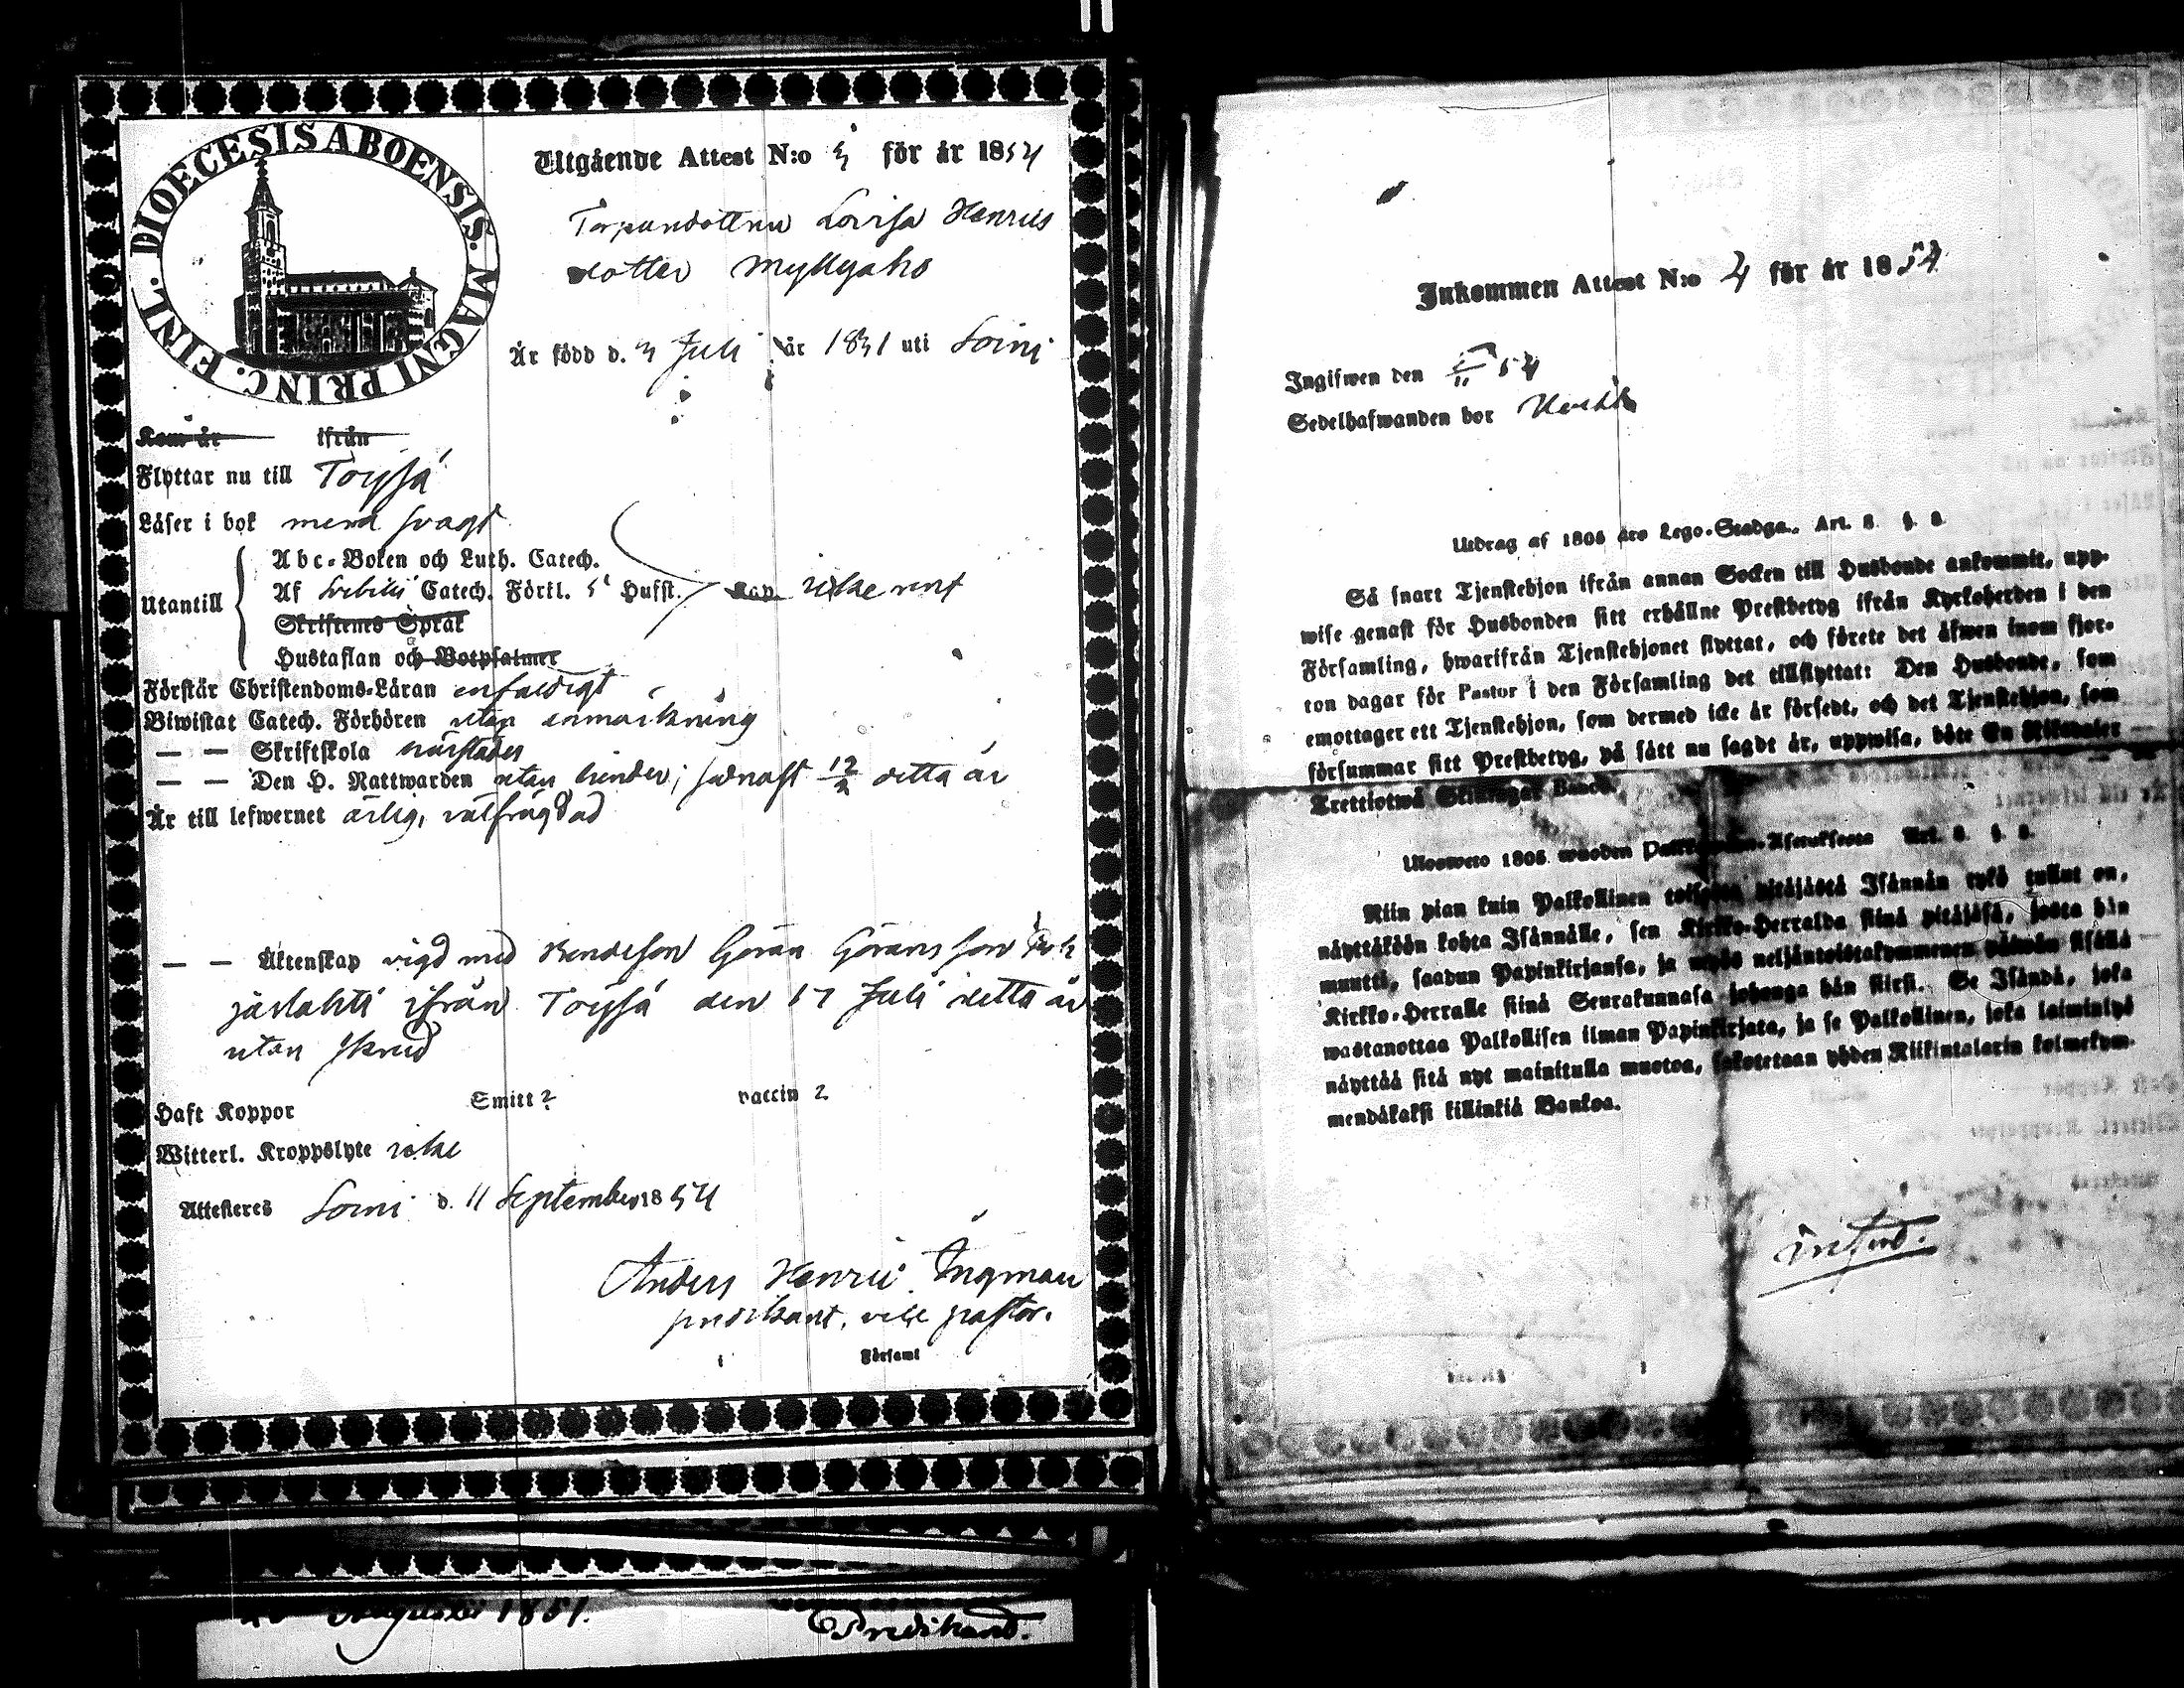 DIOECESIS ABOENSIS. MAGNI PRINC. FINL.
Utgående Attest N:o 3 för år 1854
Torparedottren Lovisa Henriks
dotter Myllyaho
Är född d. 3 Juli år 1831 uti Soini
Kom år ifrån
Flyttar nu till Töysä
Läser i bok men svagt
Utantill
Abc-Boken och Luth. Catech.
Af Svebilii Catech. Förkl. 5 Hufst. kap. icke rent
Skriftens Språk
Hustaflan och Botpsalmer
Förstår Christendoms-Läran enfaldigt
Biwistat Catech. Förhören utan anmärkning
— — Skriftskola härstädes
— — Den H. Nattwarden utan hinder; senast 12/2 detta år
Är till lefwernet ärlig, välfrägdad
— — Äktenskap vigd med Bondeson Göran Göransson
järlahti ifrån Töysä den 17 Juli detta år
utan skrud
Haft Koppor Smitt? vaccin?
Witterl. Kroppslyte icke
Attesteres Soini d. 11 September 1854
Anders Henric Ingman
predikant, vice pastor.
i Församl
Augusti 1851.
Predikand.
Inkommen Attest N:o 4 för år 1854
Ingifwen den 54
Sedelhafwanden bor
Utdrag af 1805 års Lego-Stadga, Art. 8. §. 8.
Så snart Tjenstehjon ifrån annan Socken till Husbonde ankommit, upp-
wise genast för Husbonden sitt erhållne Prestbetyg ifrån Kyrkoherden i den
Församling, hwarifrån Tjenstehjonet flyttat, och förete det äfwen inom fjor-
ton dagar för Pastor i den Församling det tillflyttat: Den Husbonde, som
emottager ett Tjenstehjon, som dermed icke är försedt, och det Tjenstehjon, som
försummar sitt Prestbetyg, på sätt nu sagdt är, uppwisa, böte En Riksdaler
Trettiotwå Skillingar Banco.
Ulosweto 1805 wuoden Asetuksesta Art. 8. §. 8.
Niin pian kuin Palkollinen toisesta pitäjästä Isännän tykö tullut on,
näyttäköön kohta Isännälle, sen Kirkko-Herralda siinä pitäjäsä, josta hän
muutti, saadun Papinkirjansa, ja myös neljäntoistakymmenen päiwän sisällä
Kirkko-Herralle siinä Seurakunnasa johonga hän siirsi. Se Isändä, joka
wastanottaa Palkollisen ilman Papinkirjata, ja se Palkollinen, joka laiminlyö
näyttää sitä nyt mainitulla muotoa, sakotetaan yhden Riikintalarin kolmekym-
mendäkaksi killinkiä Bankoa.
Införd.